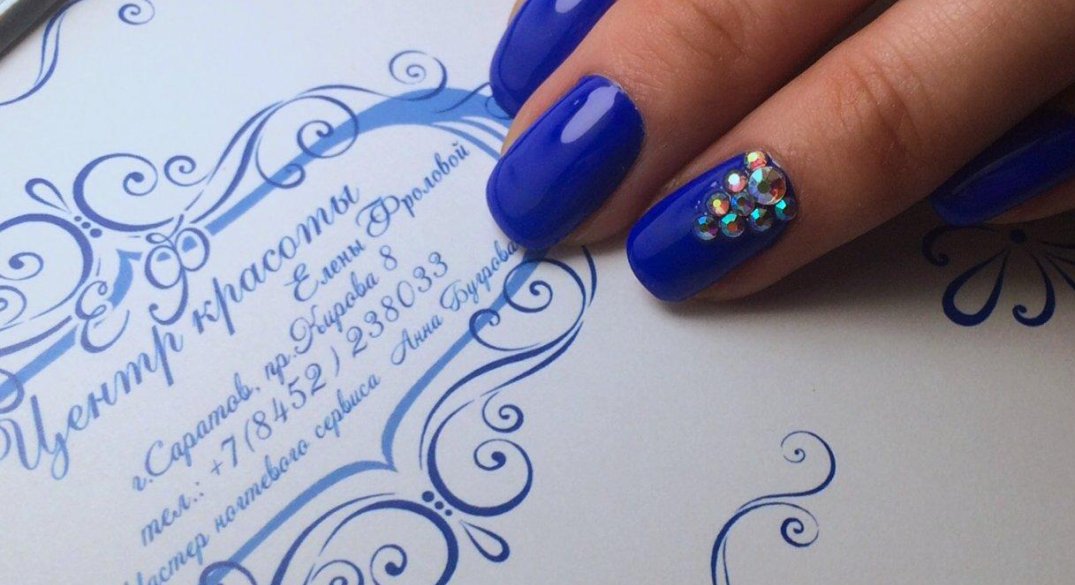 ЕФ
Центр красоты
Елены Фроловой
г.Саратов, пр.Кирова 8
тел.: +7(8452) 238033
Мастер ногтевого сервиса Анна Бугрова